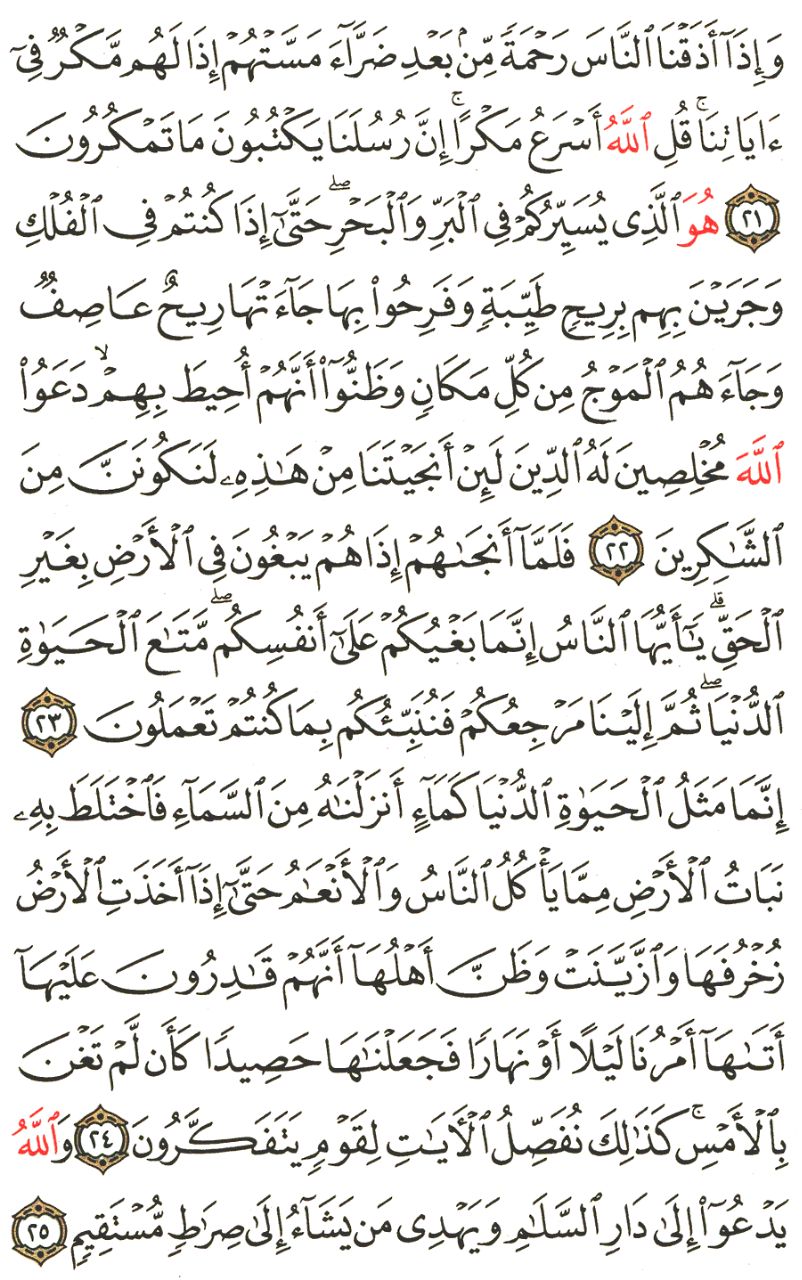 وَإِذَآ أَذَقۡنَا ٱلنَّاسَ رَحۡمَةٗ مِّنۢ بَعۡدِ ضَرَّآءَ مَسَّتۡهُمۡ إِذَا لَهُم مَّكۡرٞ فِيٓ
ءَايَاتِنَاۚ قُلِ ٱللَّهُ أَسۡرَعُ مَكۡرًاۚ إِنَّ رُسُلَنَا يَكۡتُبُونَ مَا تَمۡكُرُونَ
٢١ هُوَ ٱلَّذِي يُسَيِّرُكُمۡ فِي ٱلۡبَرِّ وَٱلۡبَحۡرِۖ حَتَّىٰٓ إِذَا كُنتُمۡ فِي ٱلۡفُلۡكِ
وَجَرَيۡنَ بِهِم بِرِيحٖ طَيِّبَةٖ وَفَرِحُواْ بِهَا جَآءَتۡهَا رِيحٌ عَاصِفٞ
وَجَآءَهُمُ ٱلۡمَوۡجُ مِن كُلِّ مَكَانٖ وَظَنُّوٓاْ أَنَّهُمۡ أُحِيطَ بِهِمۡۙ دَعَوُاْ
ٱللَّهَ مُخۡلِصِينَ لَهُ ٱلدِّينَ لَئِنۡ أَنجَيۡتَنَا مِنۡ هَٰذِهِۦ لَنَكُونَنَّ مِنَ
ٱلشَّٰكِرِينَ ٢٢ فَلَمَّآ أَنجَىٰهُمۡ إِذَا هُمۡ يَبۡغُونَ فِي ٱلۡأَرۡضِ بِغَيۡرِ
ٱلۡحَقِّۗ يَٰٓأَيُّهَا ٱلنَّاسُ إِنَّمَا بَغۡيُكُمۡ عَلَىٰٓ أَنفُسِكُمۖ مَّتَٰعَ ٱلۡحَيَوٰةِ
ٱلدُّنۡيَاۖ ثُمَّ إِلَيۡنَا مَرۡجِعُكُمۡ فَنُنَبِّئُكُم بِمَا كُنتُمۡ تَعۡمَلُونَ ٢٣
إِنَّمَا مَثَلُ ٱلۡحَيَوٰةِ ٱلدُّنۡيَا كَمَآءٍ أَنزَلۡنَٰهُ مِنَ ٱلسَّمَآءِ فَٱخۡتَلَطَ بِهِۦ
نَبَاتُ ٱلۡأَرۡضِ مِمَّا يَأۡكُلُ ٱلنَّاسُ وَٱلۡأَنۡعَٰمُ حَتَّىٰٓ إِذَآ أَخَذَتِ ٱلۡأَرۡضُ
زُخۡرُفَهَا وَٱزَّيَّنَتۡ وَظَنَّ أَهۡلُهَآ أَنَّهُمۡ قَٰدِرُونَ عَلَيۡهَآ
أَتَىٰهَآ أَمۡرُنَا لَيۡلًا أَوۡ نَهَارٗا فَجَعَلۡنَٰهَا حَصِيدٗا كَأَن لَّمۡ تَغۡنَ
بِٱلۡأَمۡسِۚ كَذَٰلِكَ نُفَصِّلُ ٱلۡأٓيَٰتِ لِقَوۡمٖ يَتَفَكَّرُونَ ٢٤ وَٱللَّهُ
يَدۡعُوٓاْ إِلَىٰ دَارِ ٱلسَّلَٰمِ وَيَهۡدِي مَن يَشَآءُ إِلَىٰ صِرَٰطٖ مُّسۡتَقِيمٖ ٢٥